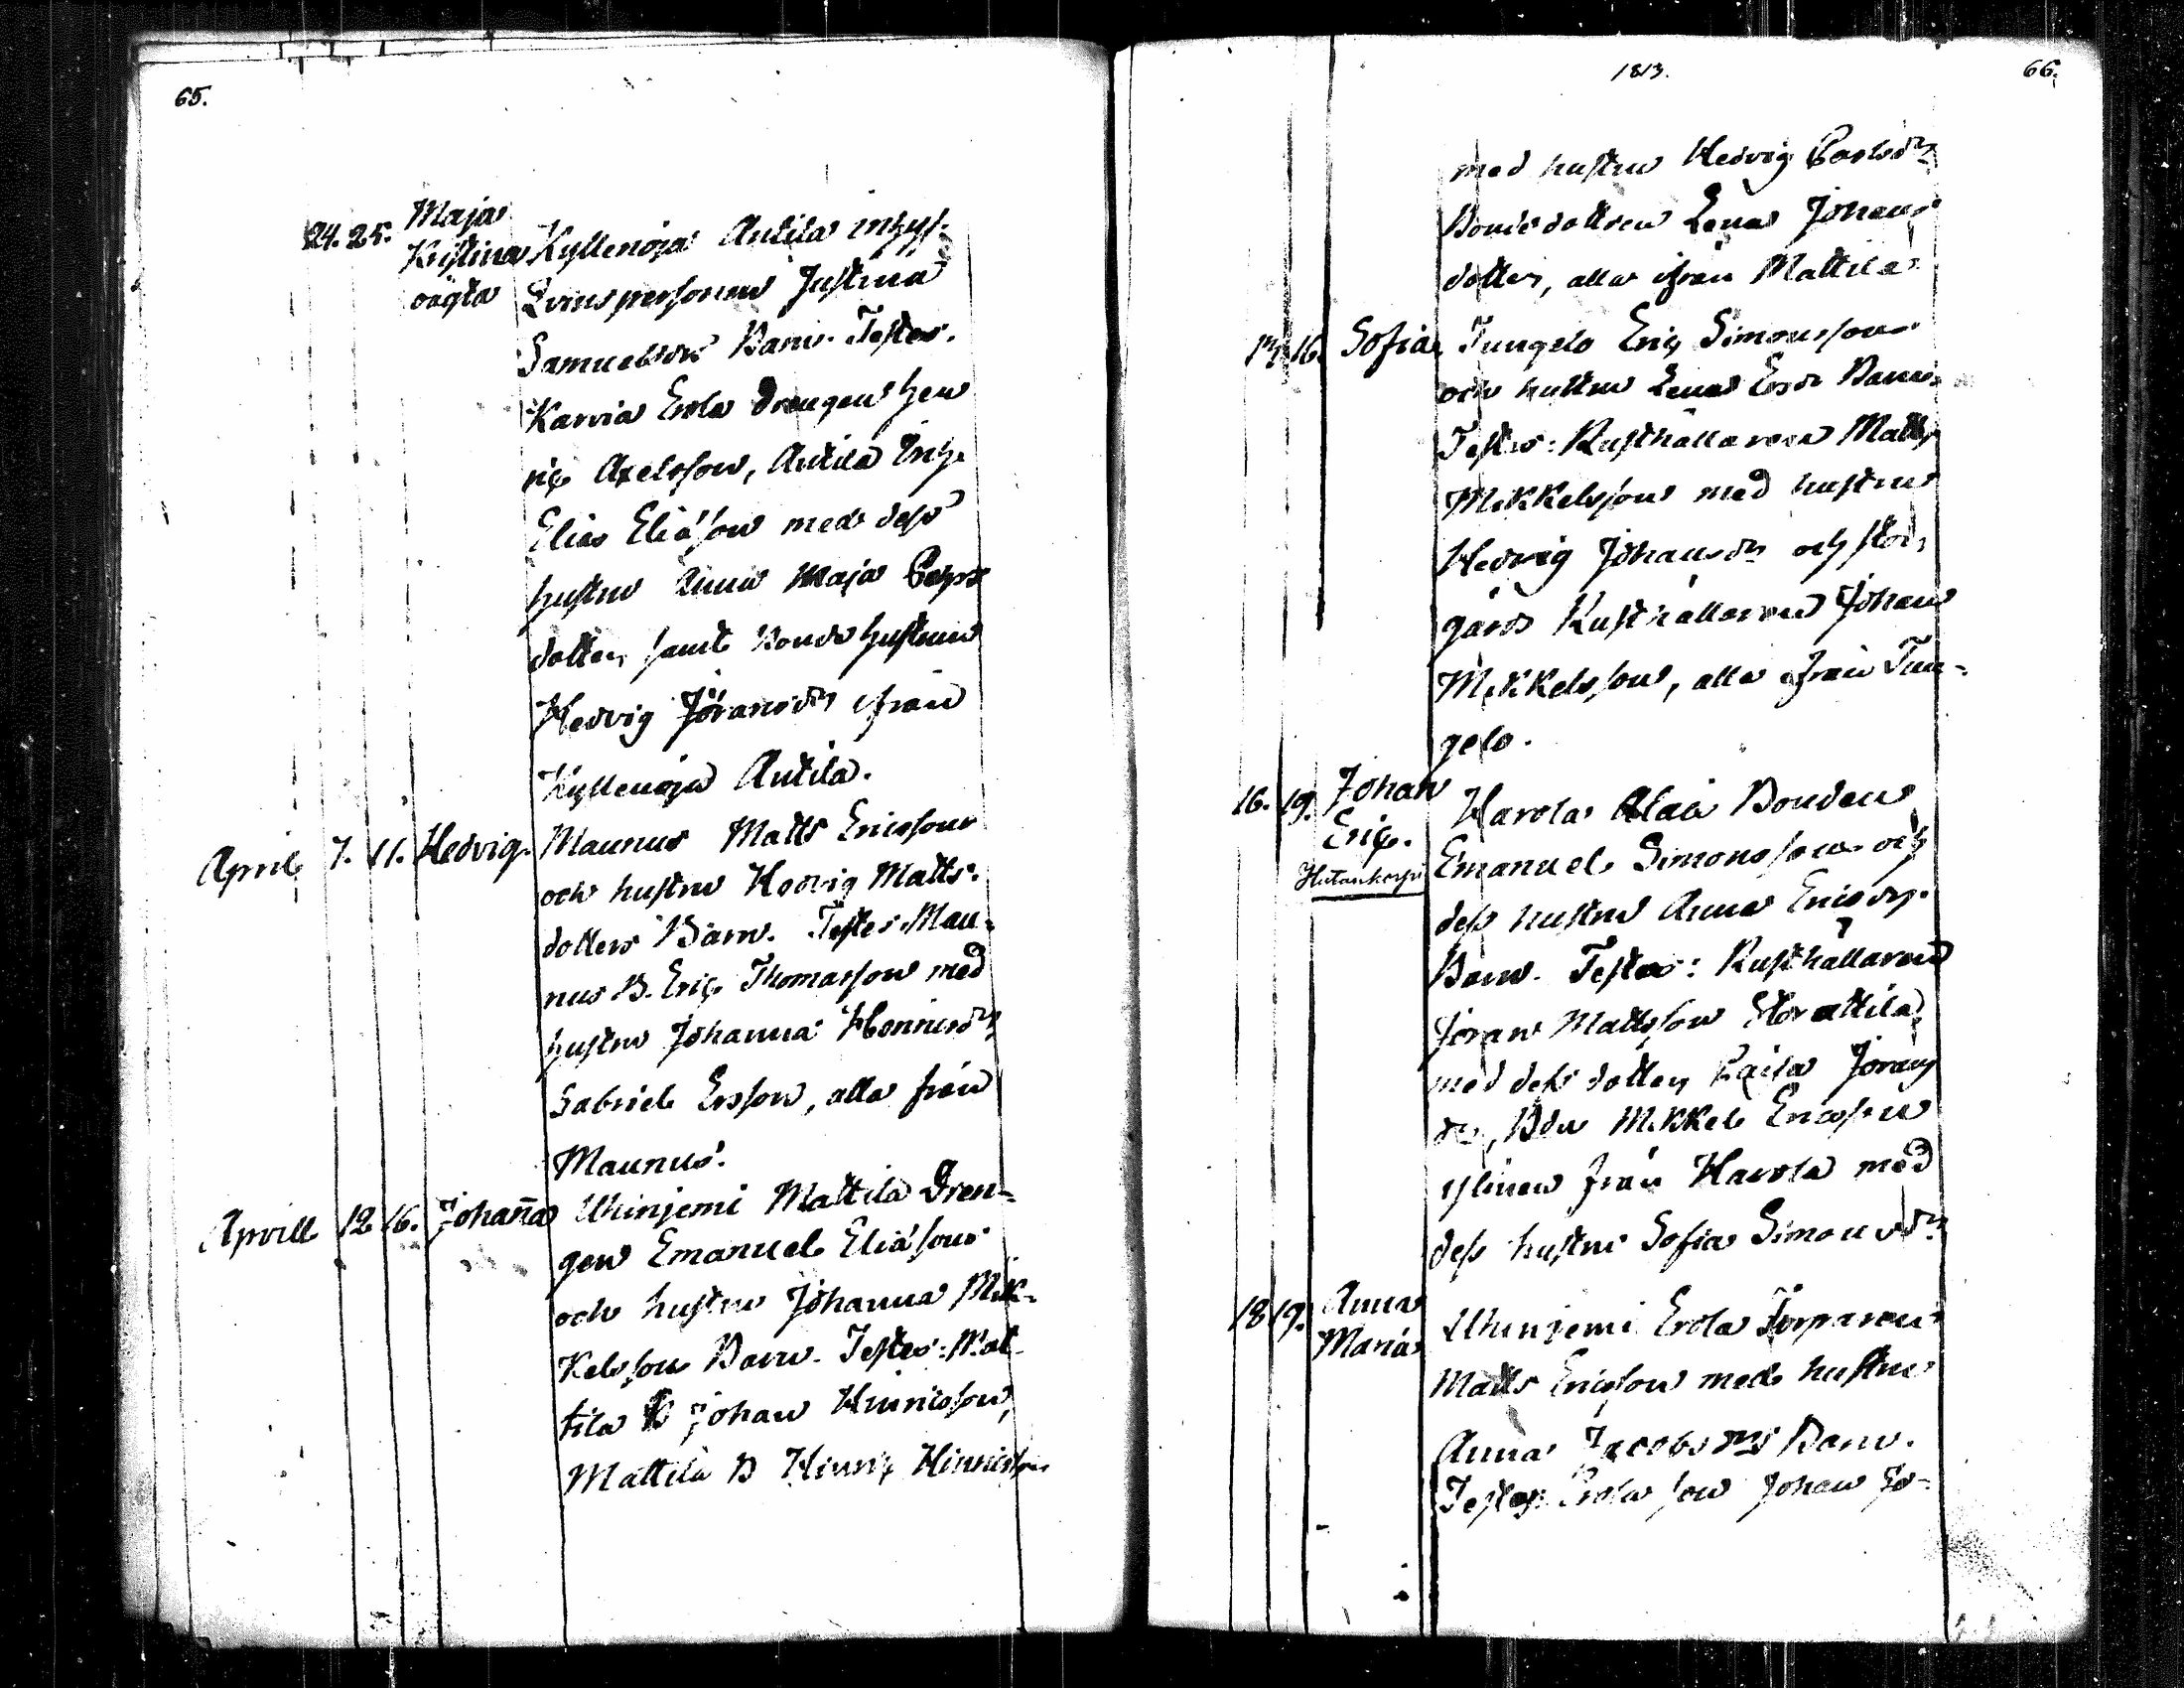 65.
Maja
24. 25. Kristina Kyllenoja Antila inhys
oägta Qvinspersonen Justina
Samuelsdrs Barn. Testes.
Karvia Erola Drengen Hen
ric Axelsson, Antila Inh.
Elias Eliasson med dess
hustru Anna Maja
dotter, samt Bonde hustrun
Hedvig Jöransdr ifrån
Kyllenoja Antila.
April 7. 11. Hedvig. Maunus Matts Ericsson
och hustru Hedvig Matts
dotters Barn. Testes. Mau-
nus B. Eric Thomasson med
hustru Johanna Henricsdr
Gabriel Ersson, alla från
Maunus.
Aprill 12 16. Johana Uhinjemi Mattila Dren-
gen Emanuel Eliasson
och hustru Johanna Mik-
kelsson Barn. Testes: Mat-
tila B Johan Hinricsson,
Mattila B Hinric Hinricsson
1813.
66.
med hustru Hedvig Carlsdr
Bondedottren Lena Johans
dotter, alla ifrån Mattila
16. Sofia Tungelo Eric Simonsson
och hustru Lena Ersdr Barn
Testes: Rusthållaren Matts
Mikkelsson med hustru
Hedvig Johansdr och Stor
gårds Rusthållaren Johan
Mikkelsson, alla ifrån Tun-
gelo.
16. 19. Johan Harola Alai Bonden
Eric. Emanuel Simonsson och
Hietankorpi dess hustru Anna Ericsdr.
Barn. Testes: Rusthållaren
Jöran Mattsson Storattila
med dess dotter Caisa Jörans
dr, Bdn Mikkel Ericsson
ylinen från Harola med
dess hustru Sofia Simonsdr
18 19. Anna Uhinjemi Erola Torparen
Maria Matts Ericsson med hustru
Anna Jacobsdrs Barn.
Testes: Erola son Johan Jo-